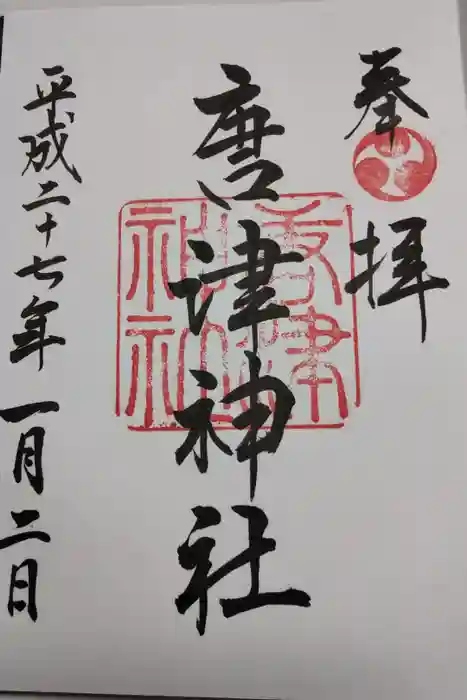 奉拝
唐津神社
唐津神社
平成二十七年一月二日